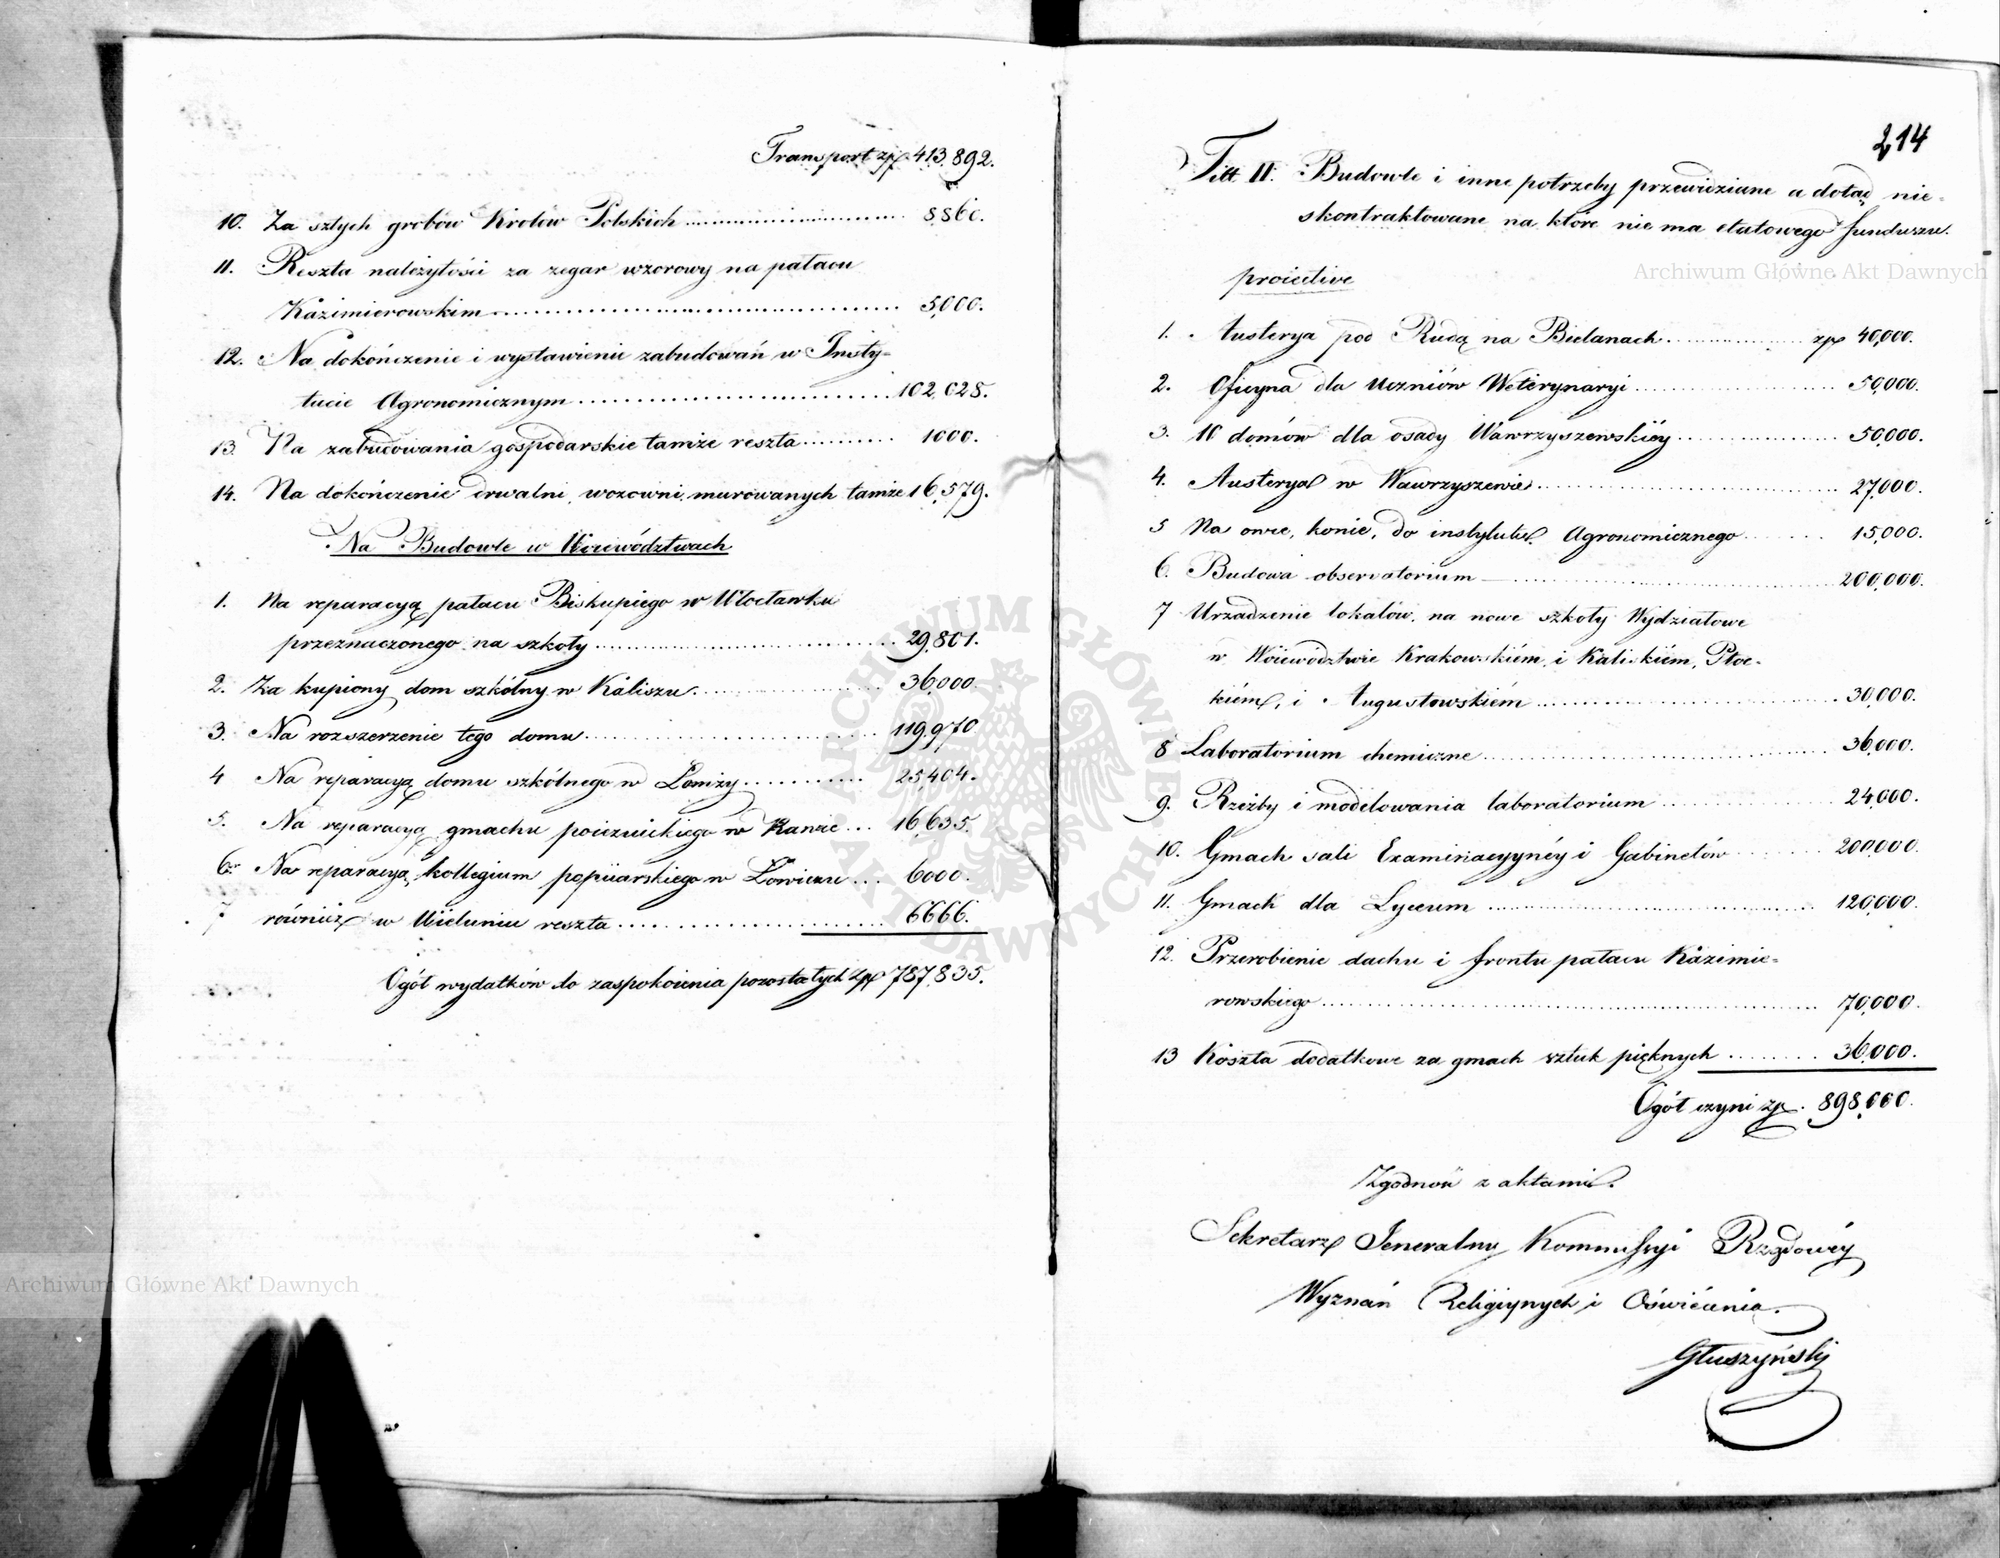 Transport zp. 413.892.
10. Za sztych grobów Krolów Polskich 8860.
11. Reszta należytości za zegar wzorowy na pałacu
Kazimierowskim 5,000.
12. Na dokończenie i wystawienie zabudowań w Insty=
tucie Agronomicznym 102,028.
13. Na zabudowania gospodarskie tamże reszta 1000.
14. Na dokończenie drwalni, wozowni murowanych tamże 16,579.
Na Budowle w Woiewództwach
1. Na reparacyą pałacu Biskupiego w Włocławku
przeznaczonego na szkoły 29,801.
2. Za kupiony dom szkólny w Kaliszu 36,000.
3. Na rozszerzenie tego domu 119,970
4 Na reparacyą domu szkólnego w Łomży 25,404.
5. Na reparacyą gmachu poiezuickiego w Rawie 16,635.
6. Na reparacyą kollegium popiiarskiego w Łowiczu 6000.
7 równiez w Wieluniu reszta 6666.
Ogół wydatków do zaspokoienia pozostałych Zp 787,835.
214
Titt II. Budowle i inne potrzeby przewidziane a dotąd nie=
skontraktowane na które nie ma etatowego funduszu.
proiective
1. Austerya pod Rudą na Bielanach zp 40,000.
2. Oficyna dla Uczniów Weterynaryi 50,000.
3. 10 domów dla osady Wawrzyszewskiéy 50,000.
4. Austerya w Wawrzyszewie 27,000.
5 Na owce, konie, do instytutu Agronomicznego 15,000.
6. Budowa observatorium 200,000.
7 Urządzenie lokalów na nowe szkoły Wydziałowe
w Woiewództwie Krakowskiém, i Kaliskiém, Płoc=
kiém, i Augustowskiém 30,000.
8 Laboratorium chemiczne 36,000.
9. Rzeźby i modelowania laboratorium 24,000.
10. Gmach sali Examinacyynéy i Gabinetów 200,000.
11. Gmach dla Lyceum 120,000.
12. Przerobienie dachu i frontu pałacu Kazimie=
rowskiego 70,000.
13 Koszta dodatkowe za gmach sztuk pięknych 36,000.
Ogół czyni zp. 898,000.
Zgodno z aktami.
Sekretarz Jeneralny Kommissyi Rządowéy
Wyznań Religiynych i Oświécenia.
Głuszyński
Archiwum Główne Akt Dawnych
Archiwum Główne Akt Dawnych
ARCHIWUM GŁÓWNE AKT DAWNYCH